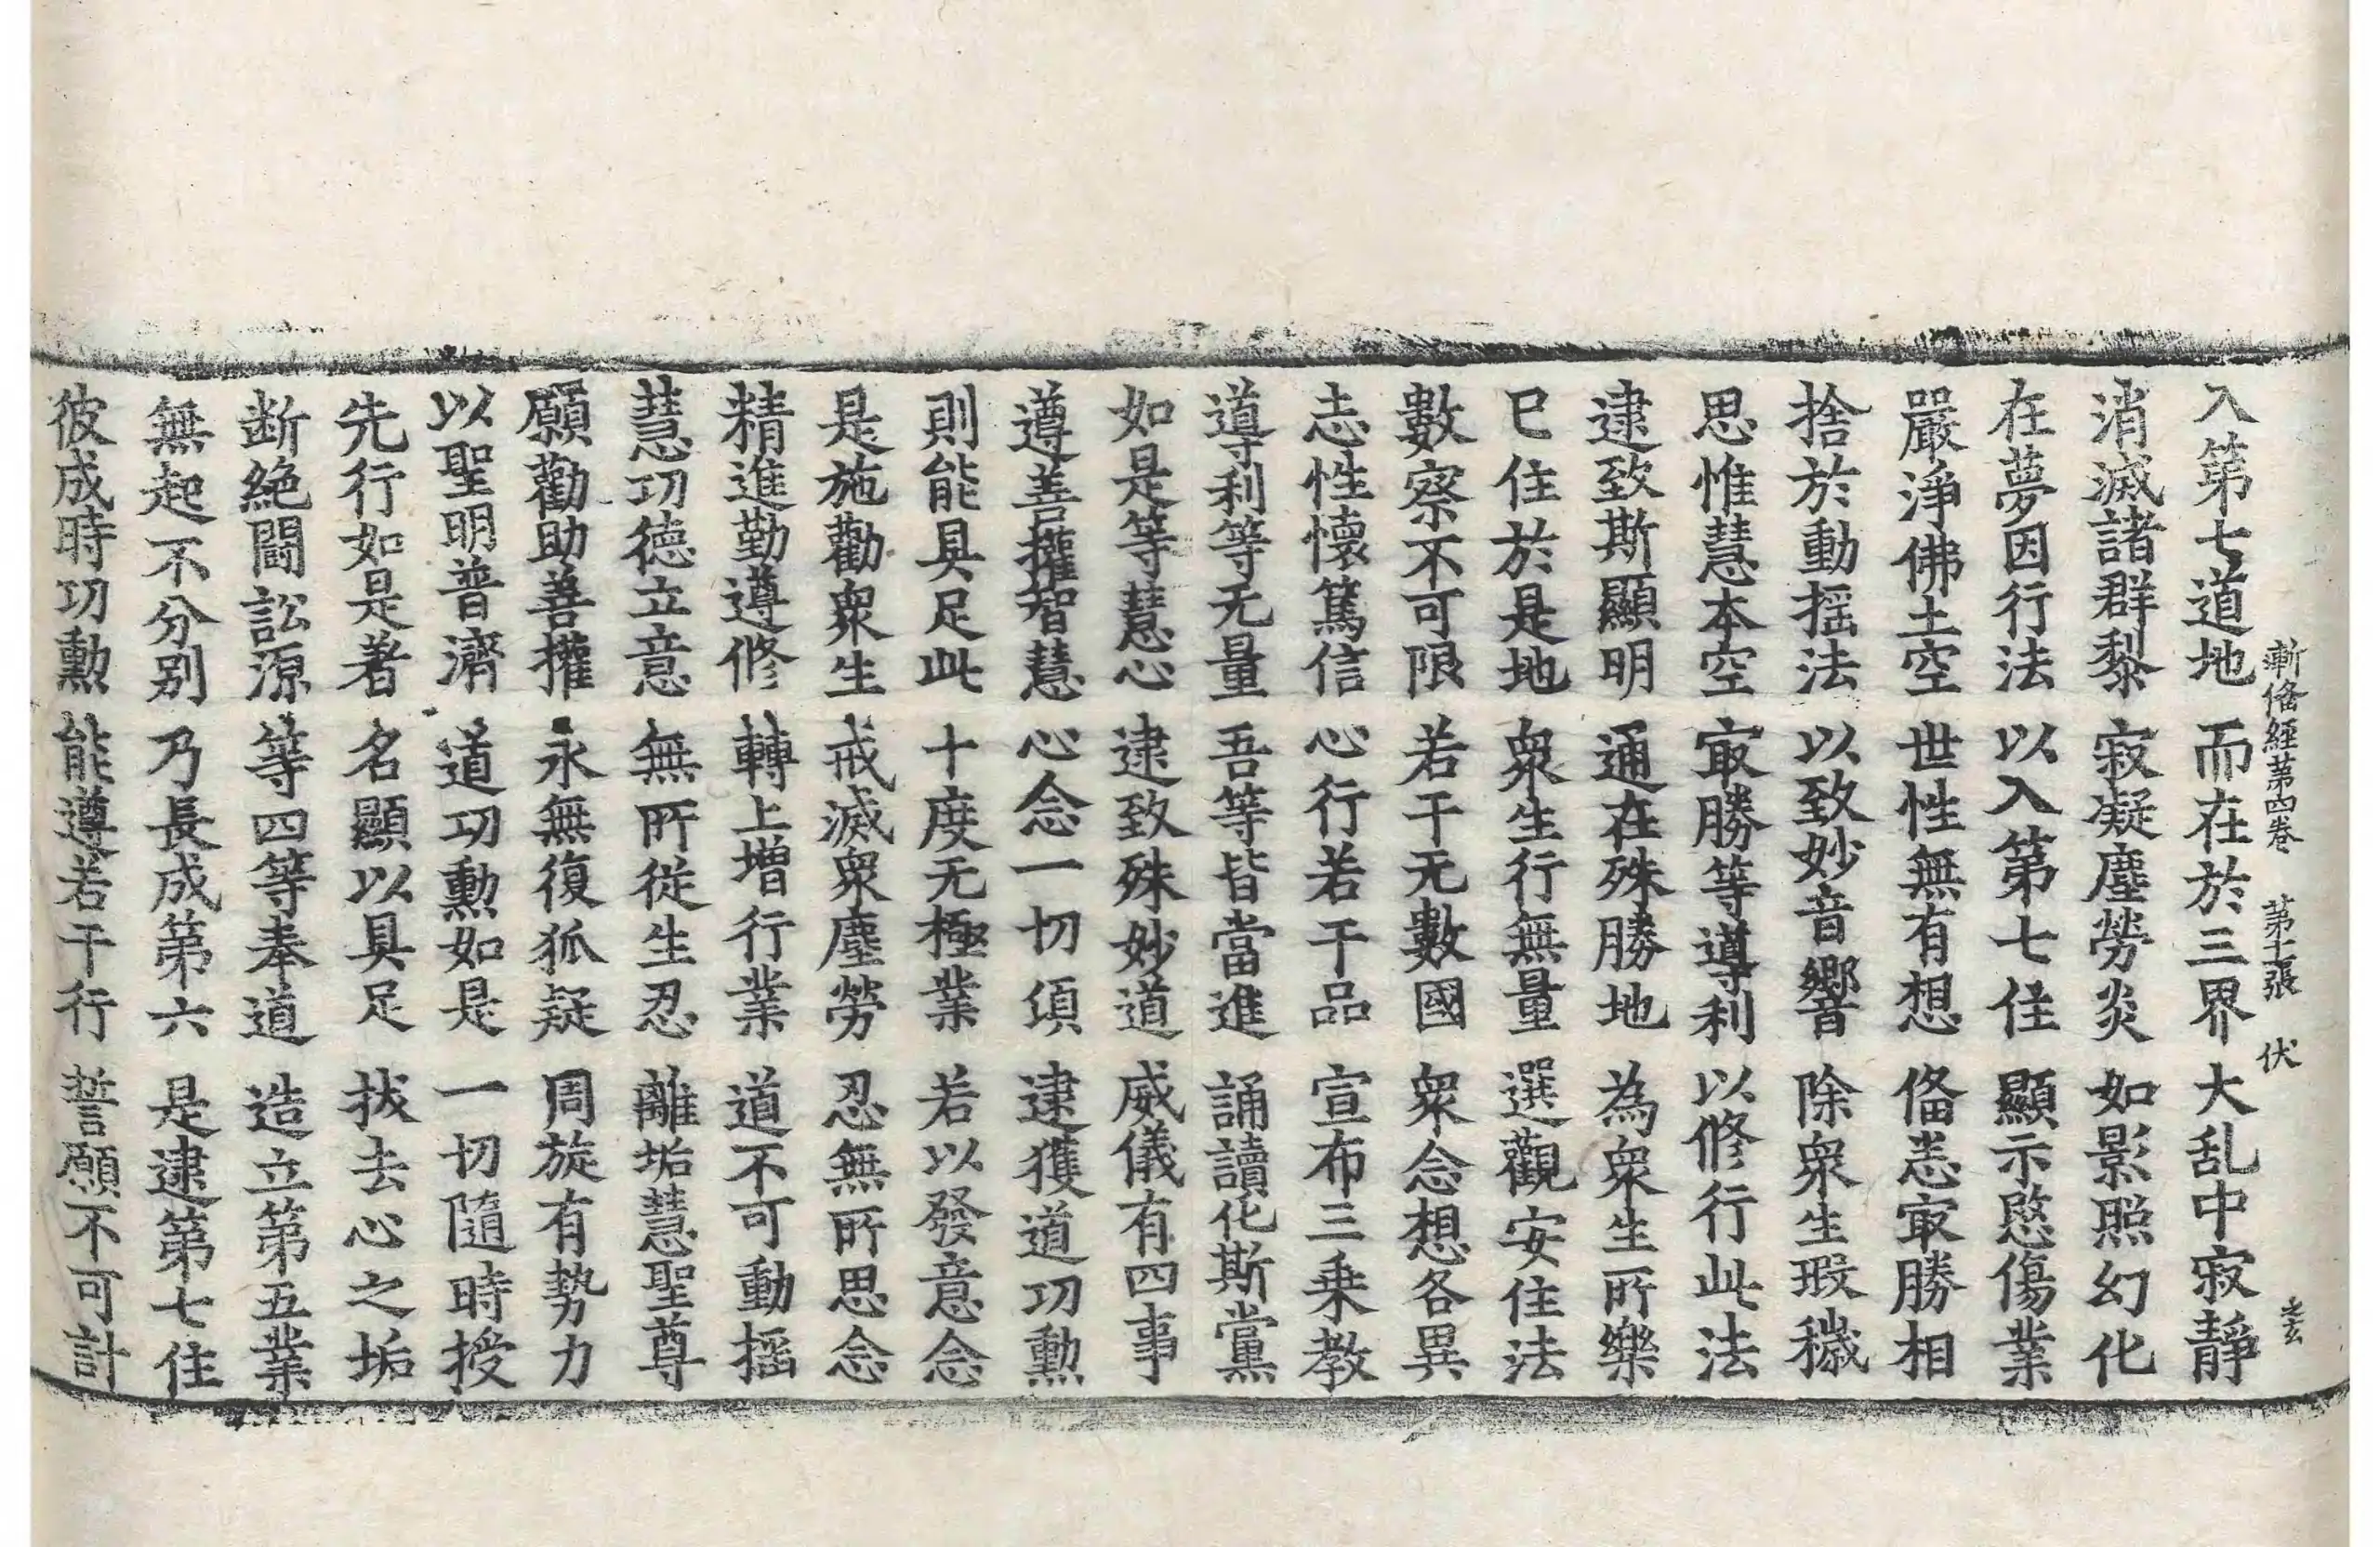 漸偹經第四卷 第十張 伏
入第七道地 而在於三界 大乱中寂靜
消滅諸群黎 寂凝塵勞炎 如影照幻化
在夢因行法 以入第七住 顯示愍傷業
嚴淨佛土空 世性無有想 偹恙㝡勝相
捨於動揺法 以致妙音響 除衆生瑕穢
思惟慧本空 㝡勝等導利 以修行此法
逮致斯顯明 通在殊勝地 為衆生所樂
已住於是地 衆生行無量 選觀安住法
數察不可限 若干无數國 衆念想各異
志性懷篤信 心行若干品 宣布三乗教
導利等无量 吾等皆當進 誦讀化斯黨
如是等慧心 逮致殊妙道 威儀有四事
遵善權智慧 心念一切湏 逮獲道功勲
則能具足此 十度无極業 若以發意念
是施勸衆生 戒滅衆塵勞 忍無所思念
精進勤遵修 轉上增行業 道不可動揺
慧功德立意 無所從生忍 離垢慧聖尊
願勸助善權 永無復狐疑 周旋有勢力
以聖明普濟 道功勲如是 一切隨時授
先行如是著 名顯以具足 拔去心之垢
断絶鬪訟源 等四等奉道 造立第五業
無起不分别 乃長成第六 是逮第七住
彼成時功勲 能遵若干行 誓願不可計